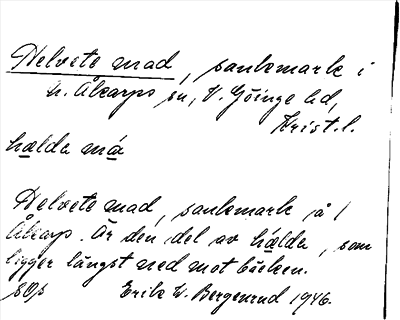 Helvete mad, sankmark i
N. Åkarps sn, V. Göinge hd,
Krist. l.
hælda má
Helvete mad, sankmark på 1
Åkarp. Är den del av hælda, som
ligger längst ned mot bäcken.
Erik W. Bergenrud 1946.